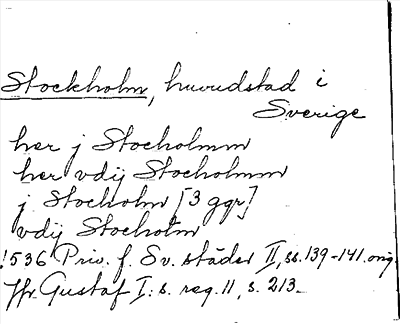 Stockholm, huvudstad i
Sverige
her j Stocholmm
her vdij Stocholmm
j Stocholm [3 ggr]
vdij Stocholm
1536 Priv. f. Sv. städer II, ss. 139-141. orig.
Jfr Gustaf I:s reg. 11, s. 213.